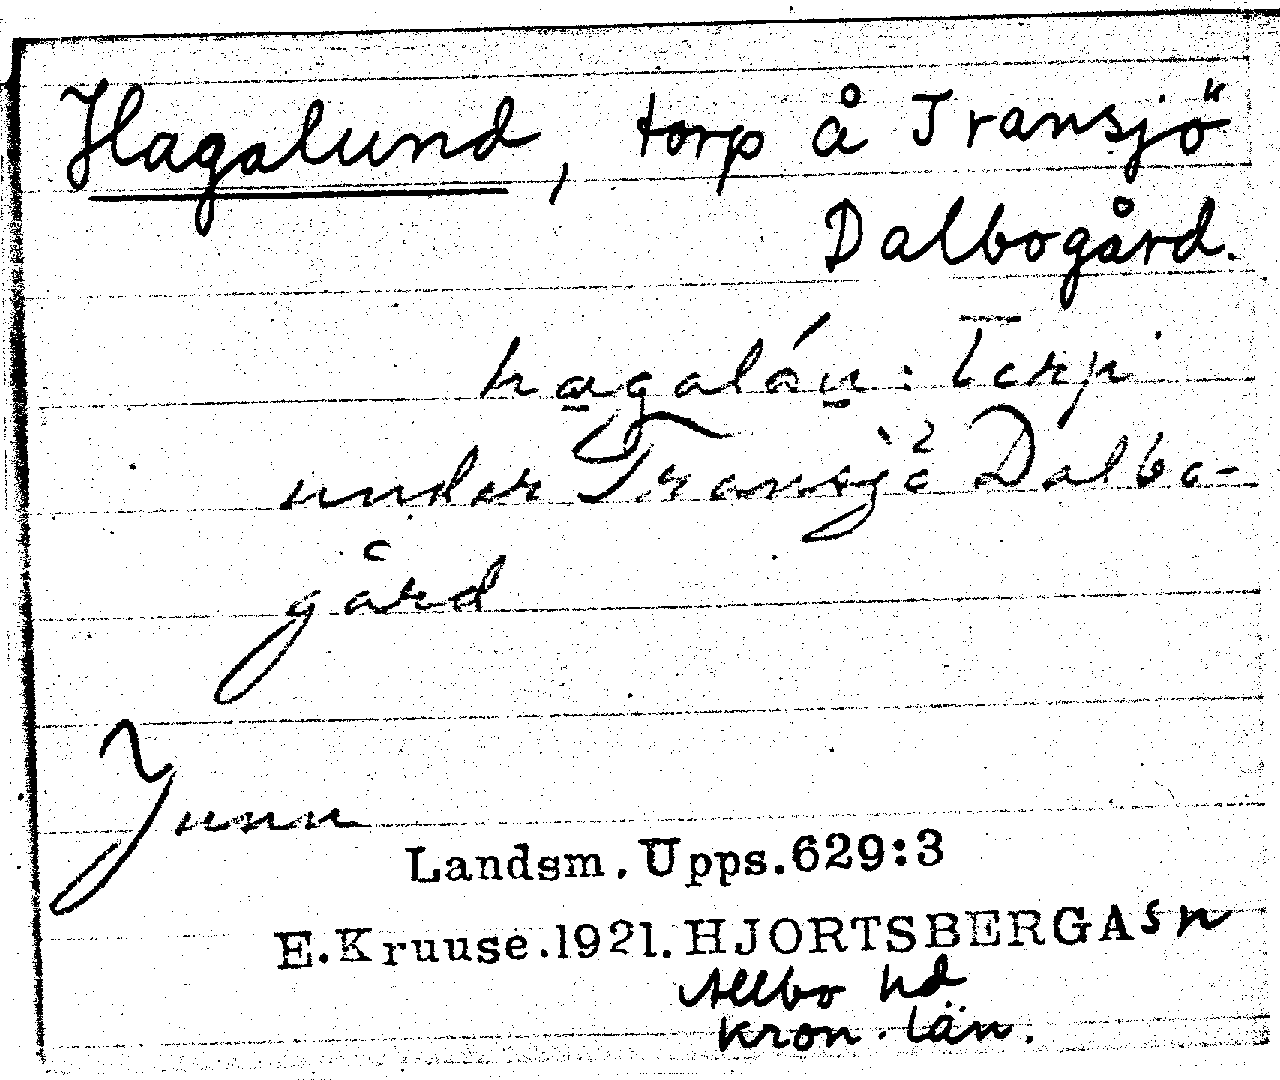 Hagalund, torp å Transjö
Dalbogård.
hagaláu̠: Torp
under Transjö Dalbo-
gård
Landsm. Upps. 629:3
E. Kruuse. 1921. HJORTSBERGA sn
Allbo hd
Kron. län.